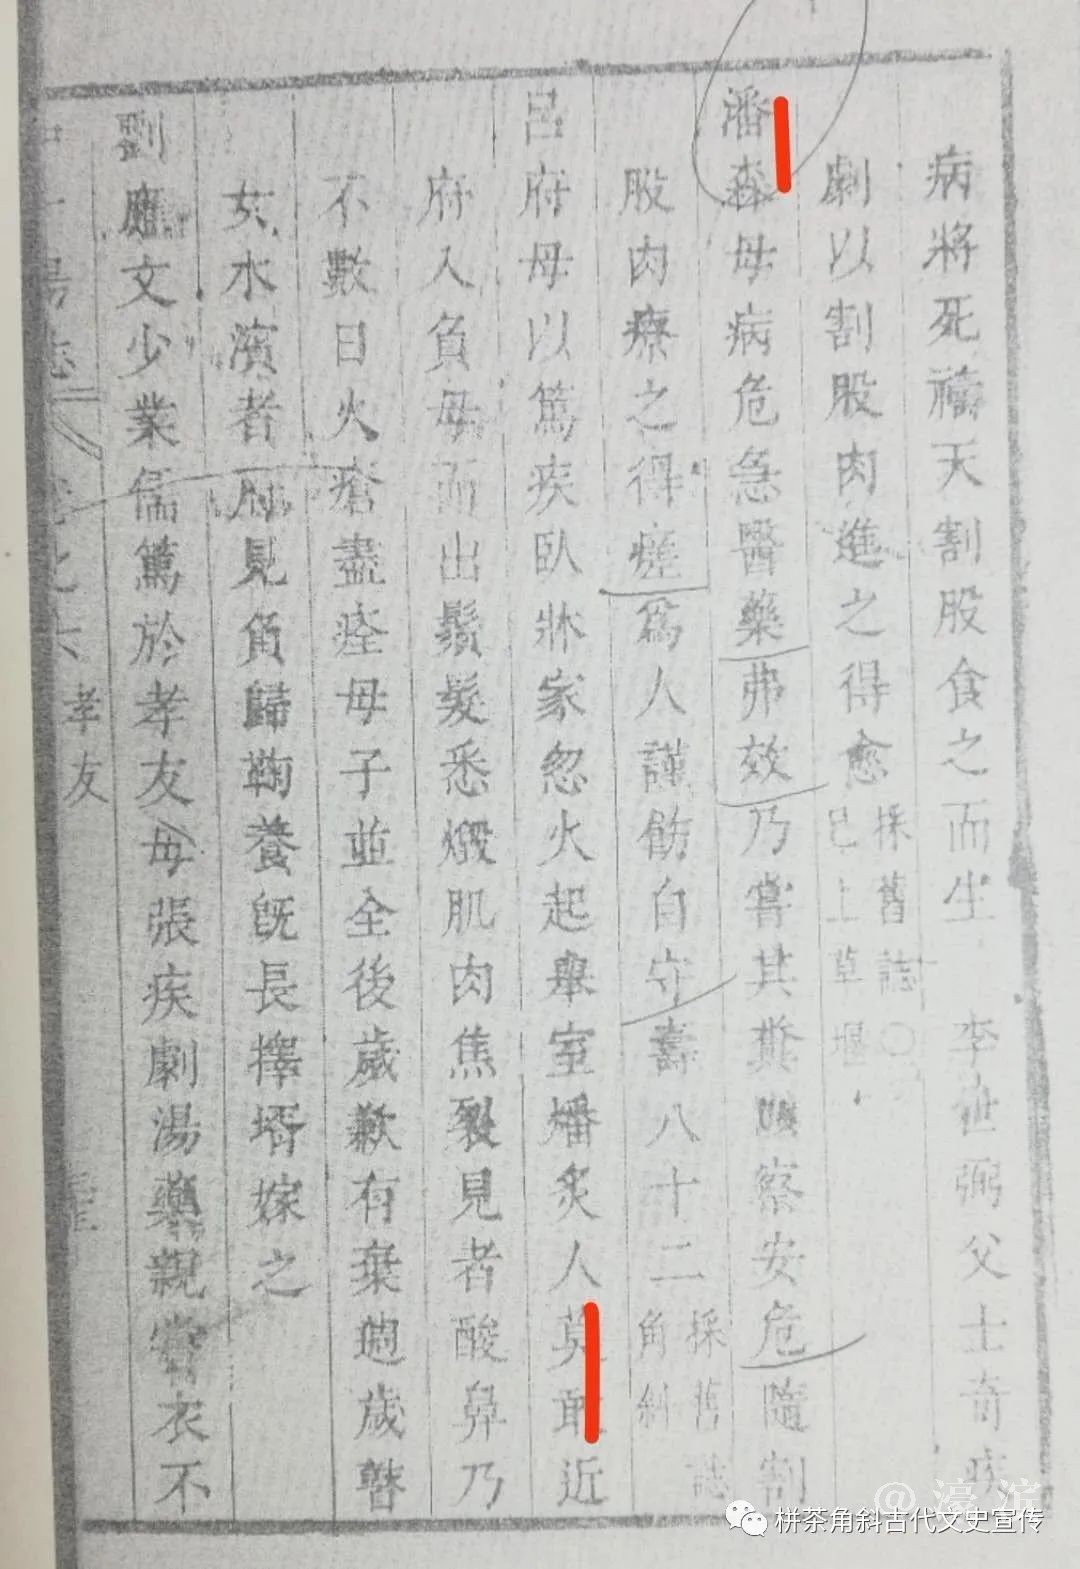 病將死禱天割股食之而生 李世弼父士奇疾
劇以割股肉進之得愈 採舊誌○
已上草堰
潘森母病危急醫藥弗效乃嘗其糞以察安危隨割
股肉療之得瘥爲人謹飭自守壽八十二 採舊誌
角斜
呂府母以篤疾臥牀家忽火起舉室燔炙人莫敢近
府入負母而出鬚髮悉燬肌肉焦裂見者酸鼻乃
不數日火瘡盡痊母子並全後歲歉有棄週歲瞽
女水濱者府見負歸鞠養旣長擇壻嫁之
劉應文少業儒篤於孝友母張疾劇湯藥親嘗衣不
孝友
@濠滨
栟茶角斜古代文史宣传